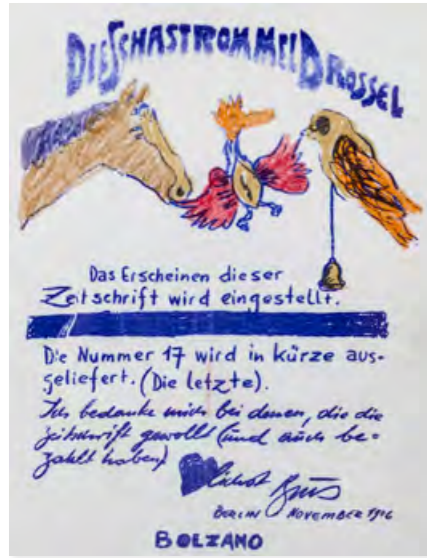 DIE SCHASTROMMEL DROSSEL
Das Erscheinen dieser
Zeitschrift wird eingestellt.
Die Nummer 17 wird in kürze aus-
geliefert. (Die letzte).
Ich bedanke mich bei denen, die die
Zeitschrift gewollt (und auch be-
zahlt haben)
lichst Brus
BERLIN NOVEMBER 1976
BOLZANO